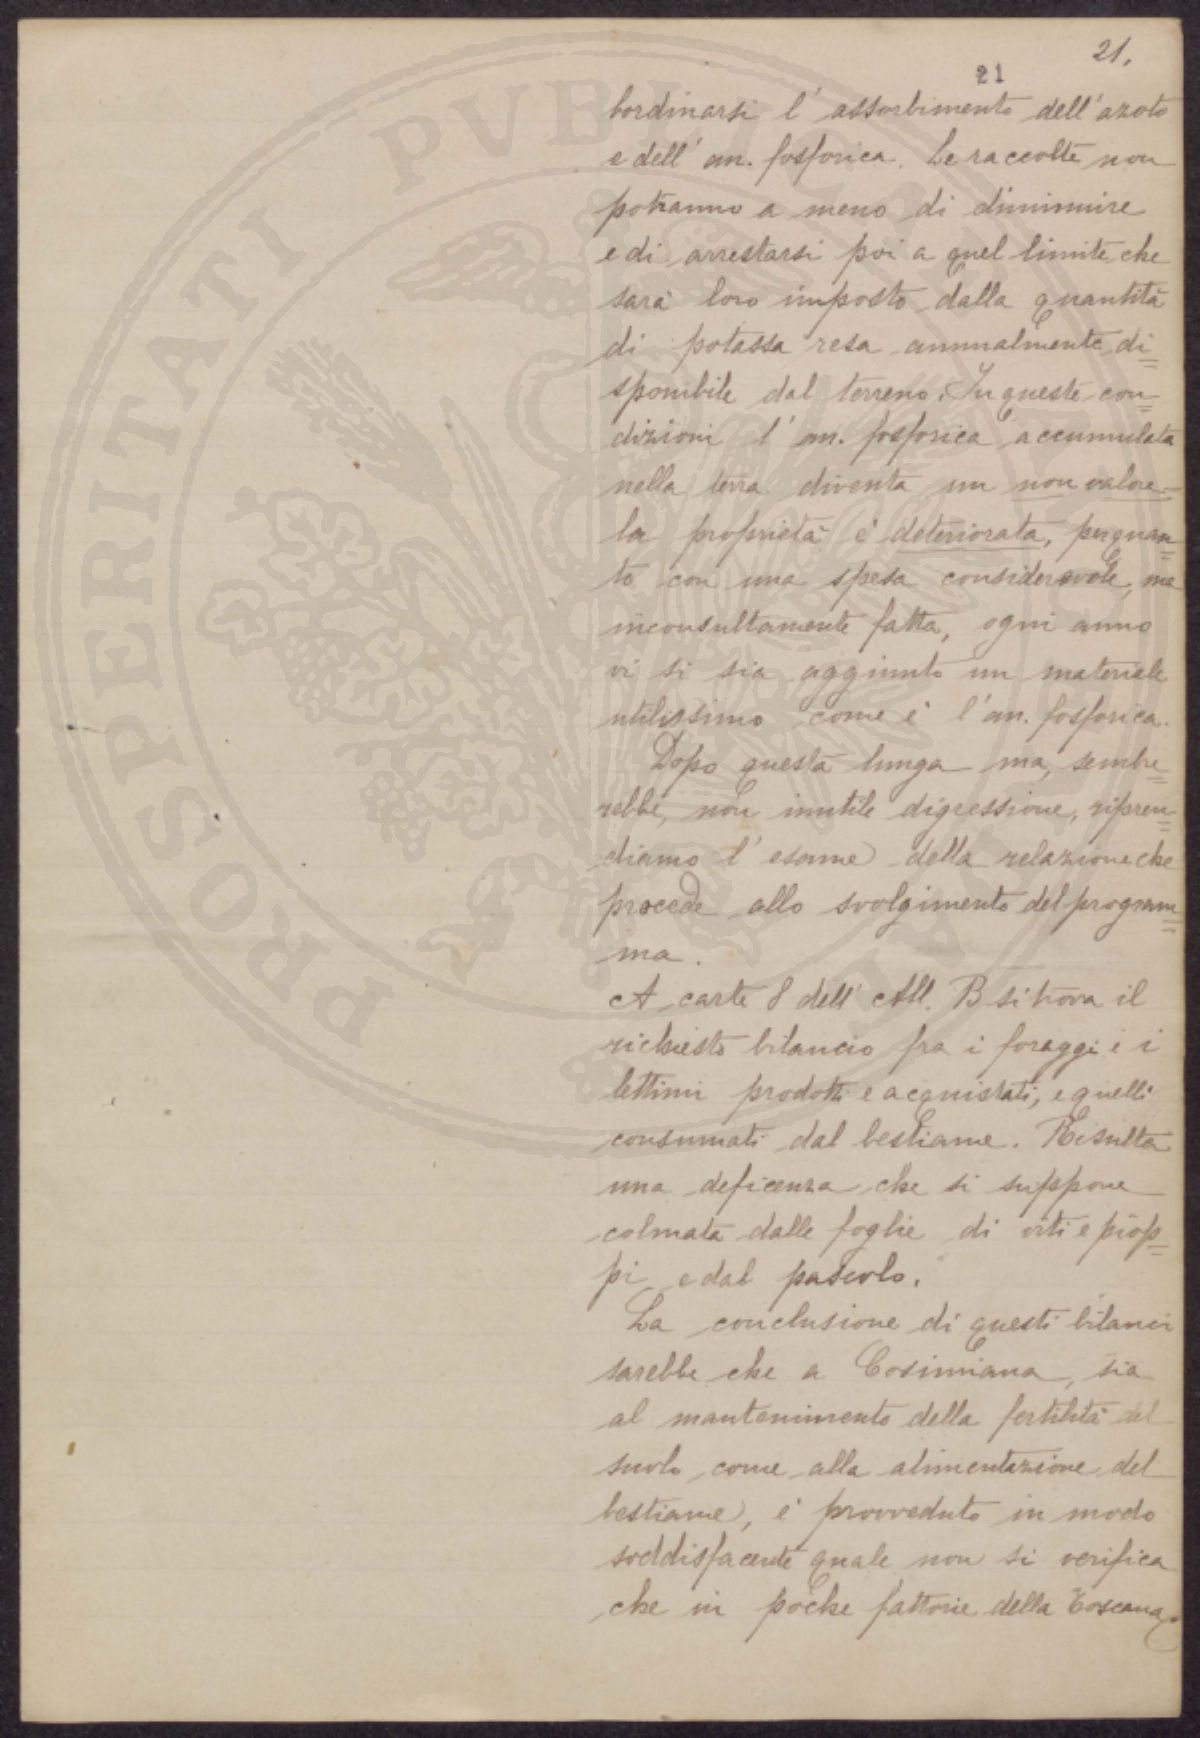 21.
21
bordinarsi l'assorbimento dell'azoto
e dell'an. fosforica. Le raccolte non
potranno a meno di diminuire
e di arrestarsi poi a quel limite che
sarà loro imposto dalla quantità
di potassa resa annualmente di=
sponibile dal terreno. In queste con=
dizioni l'an. fosforica accumulata
nella terra diventa un non valore
la proprietà è deteriorata, perquan=
to con una spesa considerevole, ma
inconsultamente fatta, ogni anno
vi si sia aggiunto un materiale
utilissimo come è l'an. fosforica.
Dopo questa lunga ma, sembre=
rebbe, non inutile digressione, ripren=
diamo l'esame della relazione che
precede allo svolgimento del program=
ma.
A carte 8 dell'All. B si trova il
richiesto bilancio fra i foraggi e i
lettimi prodotti e acquistati, e quelli
consumati dal bestiame. Risulta
una deficenza che si suppone
colmata dalle foglie di viti e piop=
pi e dal pascolo.
La conclusione di questi bilanci
sarebbe che a Cosimiana, sia
al mantenimento della fertilità del
suolo come alla alimentazione del
bestiame, è provveduto in modo
soddisfacente quale non si verifica
che in poche fattorie della Toscana.
PROSPERITATI PVBLICAE